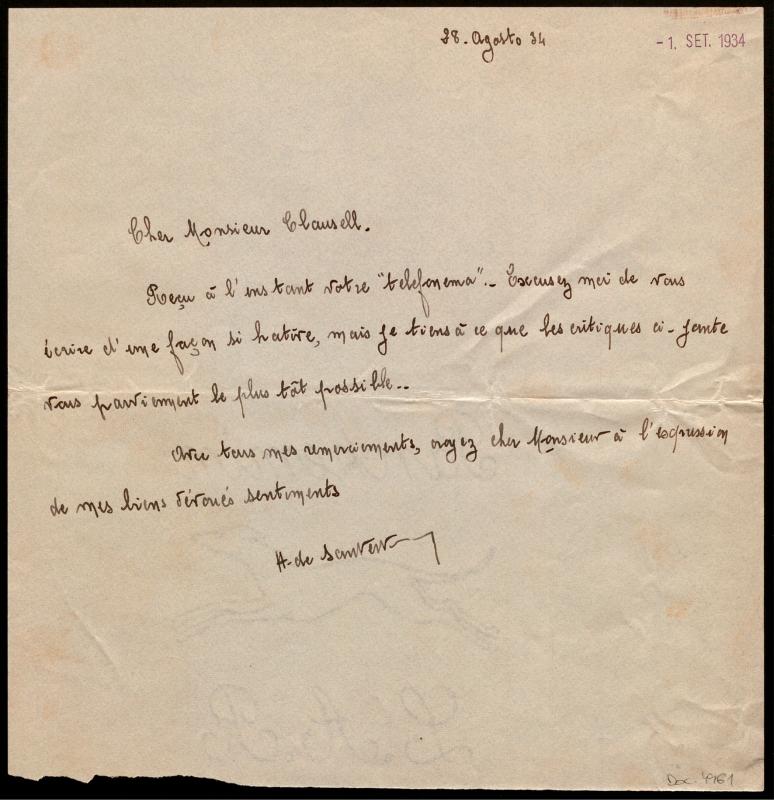 28. Agosto 34
- 1. SET. 1934
Cher Monsieur Clausell.
Reçu à l'instant votre "telefonema".- Excusez moi de vous
écrire d'une façon si hative, mais je tiens à ce que les critiques ci-jante
vous parviennent le plus tôt possible..
Avec tous mes remerciements, croyez cher Monsieur à l'expression
de mes biens dévoués sentiments
H. de
Doc. 4161